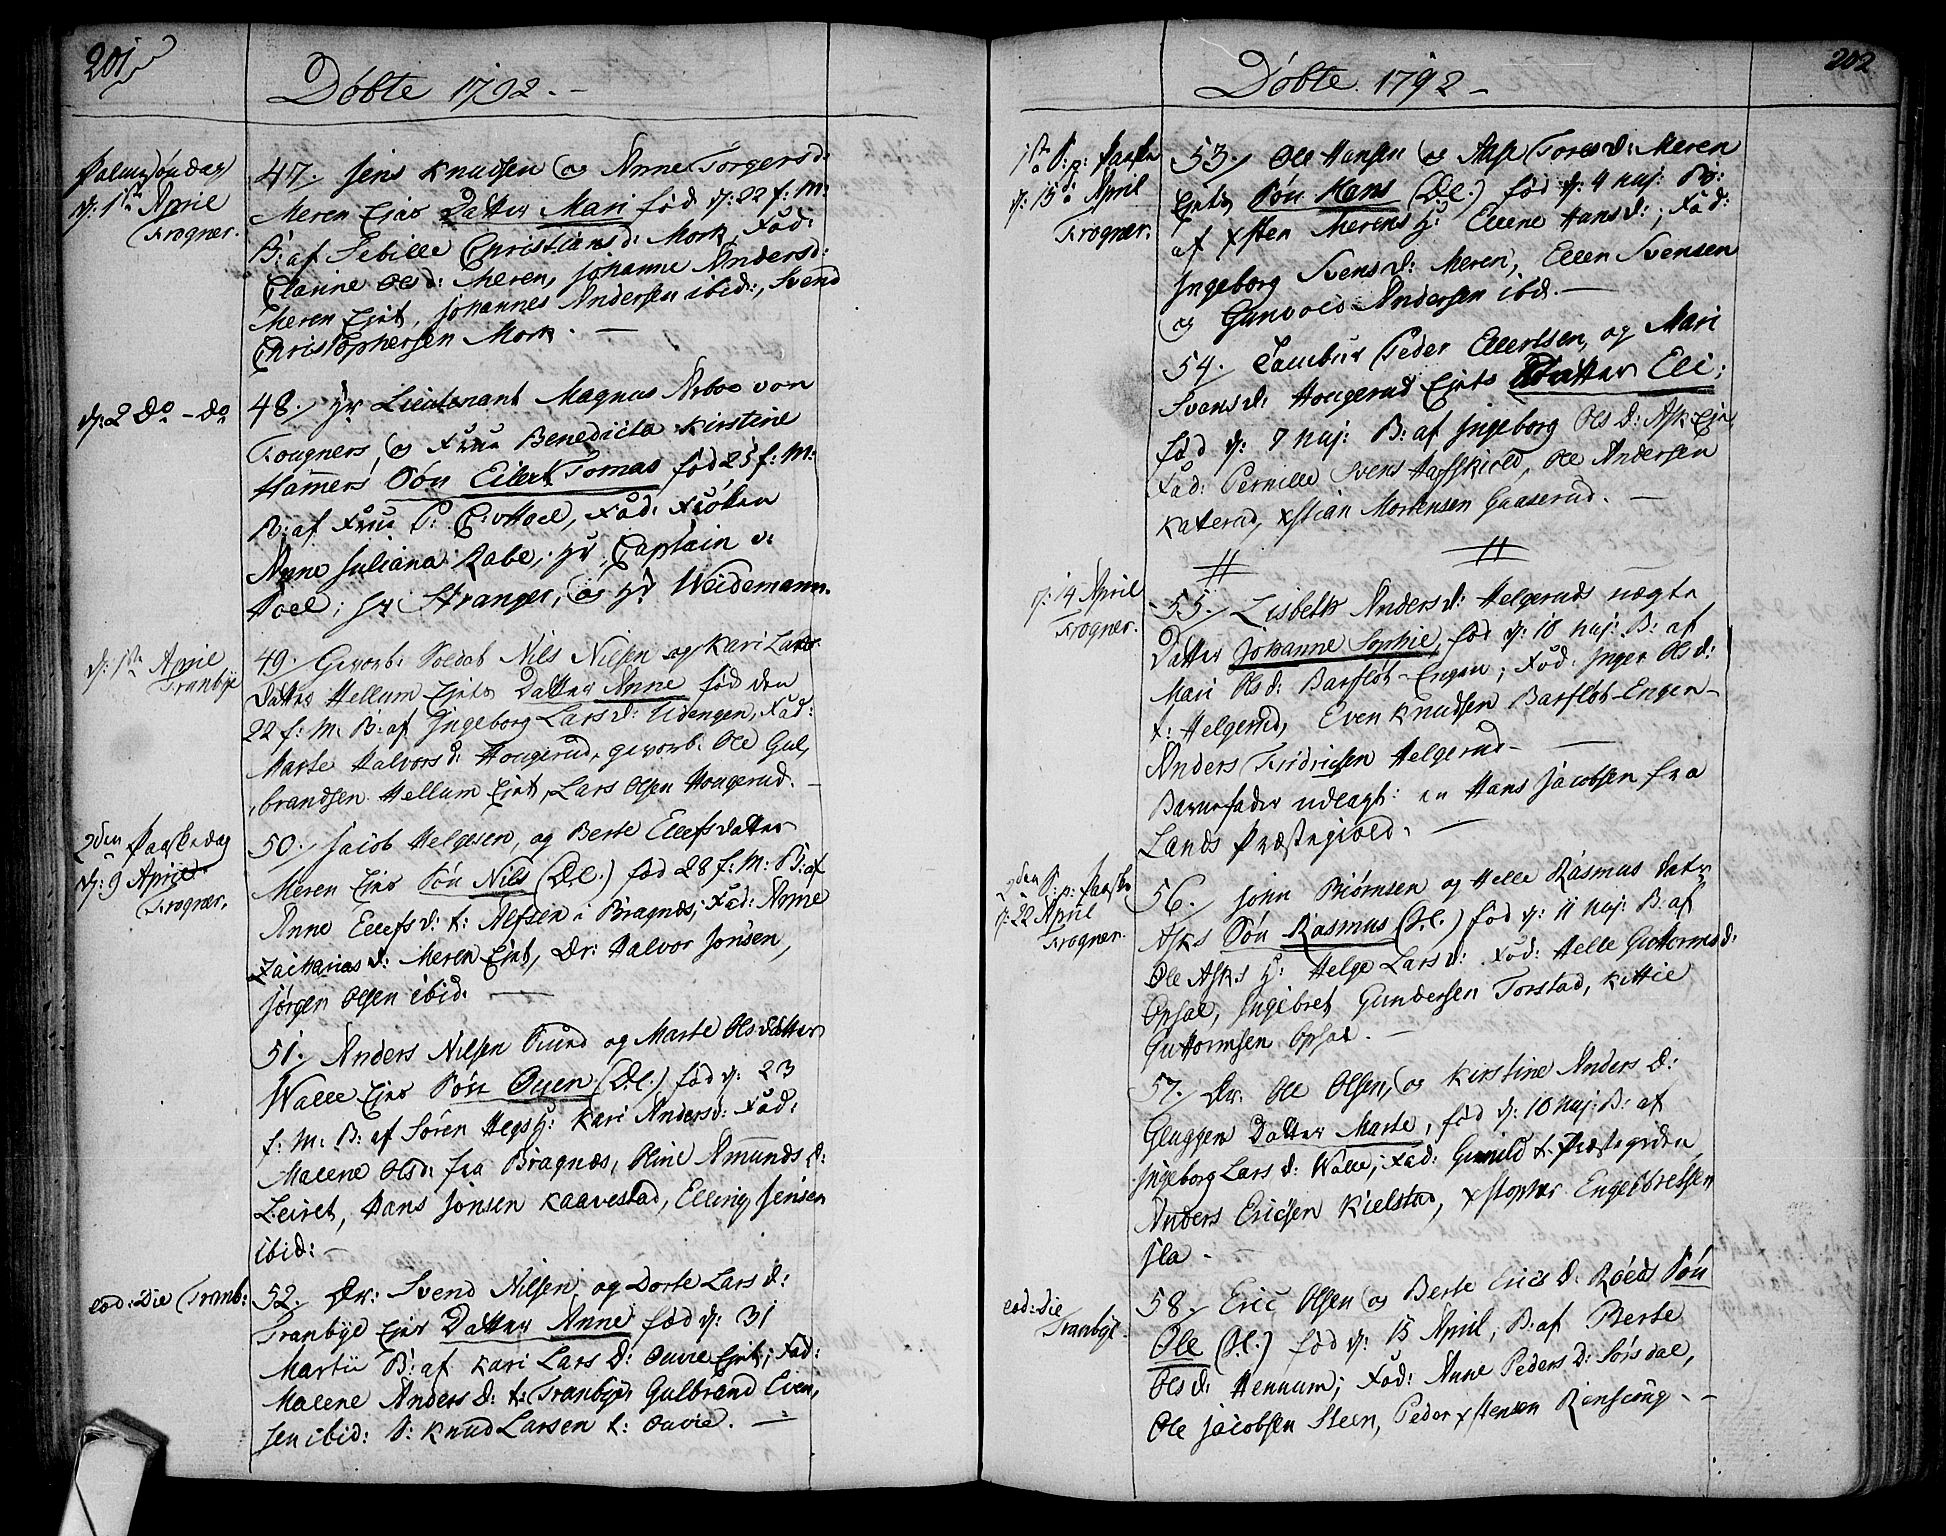 201
Døbte 1792. -
Palmesøndag
d: 1ste April
Frogner.
47. Jens Knudsen og Anne Torgersd:
Meren Ejes Datter Mari fød d: 22 f: M:
B: af Sebille Christiansd: Mork, Fad:
Olsd: Meren, Johanne Andersd:
Meren Ejet, Johannes Andersen ibid:, Svend
Christophersen Mork. -
d: 2 do - do
48. Hr Lieutenant Magnus von
og Frue Benedicta Kirstine
Hamers Søn Eilert Tomas fød 25 f: M:
B: af Frue Fad: Frøken
Anne Juliana Rabe; Hr Captain v:
Hoel; Hr Stranger, og Hr Weidemann.
d: 1ste April
Tranbye
49. Gevorb: Soldat Nils Nilsen og Kari Lars
datter Hellum Ejets Datter Anne fød den
22 f: M: B: af Ingeborg Larsd: Udengen, Fad:
Marte Halvorsd: Hougerud, gevorb: Ole Gul,
brandsen Hellum Ejet, Lars Olsen Hougerud. -
2den Paaskedag
d: 9 April
Frogner.
50. Jacob Helgesen, og Berte Ellefsdatter
Meren Ejes Søn Nils (Dl.) fød 28 f: M: B: af
Anne Ellefsd: t: Alfsen i Bragnæs; Fad: Anne
Zachariasd: Meren Ejet, Dr: Halvor Jonsen,
Jørgen Olsen ibid. -
51. Anders Nilsen Suund og Marte Olsdatter
Walle Ejes Søn Ouen (Dl.) fød d: 23
f: M: B: af Søren Hegs H: Kari Andersd: Fad:
Malene Olsd: fra Bragnæs, Oline Amundsd:
Leiret, Hans Jonsen Kaavestad, Elling Jensen
ibid: -
eod: Die Tranb:
52. Dr: Svend Nilsen, og Dorte Larsd:
Tranbye Ejes Datter Anne fød d: 31
Martii B: af Kari Larsd: Ouvie Ejet; Fad:
Malene Andersd: t: Tranbye, Gulbrand Even,
sen ibid: S: Knud Larsen t: Ouvie. -
202
Døbte 1792 -
1ste S: p: Paaske
d: 15de April
Frogner.
53. Ole Hansen og Aase Toresd: Meren
Ejets Søn Hans (Dl.) fød d: 4 huj: B:
af Xsten Merens H: Ellene Hansd:; Fad:
Ingeborg Svensd: Meren, Ellen Svensen
og Gunvold Andersen ibd. -
54. Tambur Peder Ellertsen, og Mari
Svensd: Hougerud Ejets Datter Eli;
fød d: 7 huj: B: af Ingeborg Olsd: Ask Eje,
Fad: Pernille Svens Ole Andersen
Katerud, Xstian Mortensen Gaaserud. -
d: 14 April
Frogner.
55. Lisbeth Andersd: Helgeruds uægte
Datter Johanne Sophie, fød d: 10 huj: B: af
Mari Olsd: Barfløt-Engen; Fad: Inger Olsd:
t: Helgerud, Even Knudsen Barfløt-Engen-
Anders Fridrichsen Helgerud- -
Barnefader udlagt: en Hans Jacobsen fra
Lands Præstegield. -
2den S: p: Paaske
d: 22 April
Frogner.
56. John Biørnsen og Helle Rasmusdatter
Asks Søn Rasmus (Hl.) fød d: 11 huj: B: af
Ole Asks H: Helge Larsd: Fad: Helle Guttormsd:
Opsal, Ingebret Gundersen Torstad, Kittil
Guttormsen Opsal. -
57. Dr. Ole Olsen, og Kirstine Andersd:
Gluggen Datter Marte, fød d: 10 huj: B: af
Ingeborg Larsd: Walle; Fad: Gunild t. Præstegrden
Anders Ericsen Kielstad, Xstopher Engebbretsen
-
eod: Die
Tranbye.
58. Eric Olsen og Berte Ericsd: Røeds Søn
Ole (Hl.) fød d: 15 April, B: af Berte
Olsd: Hennum; Fad: Anne Pedersd: Sørsdal,
Ole Jacobsen Steen, Peder Xstensen - -